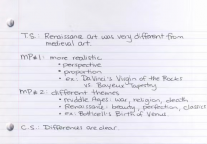 T.S.: Renaissance art was very different from
medieval art.
MP#1: more realistic
• perspective
• proportion
• ex: DaVinci's Virgin of the Rocks
vs. Bayeux Tapestry
MP#2: different themes
• Middle Ages: war, religion, death
• Renaissance: beauty, perfection, classics
• ex: Botticelli's Birth of Venus
C.S.: Differences are clear